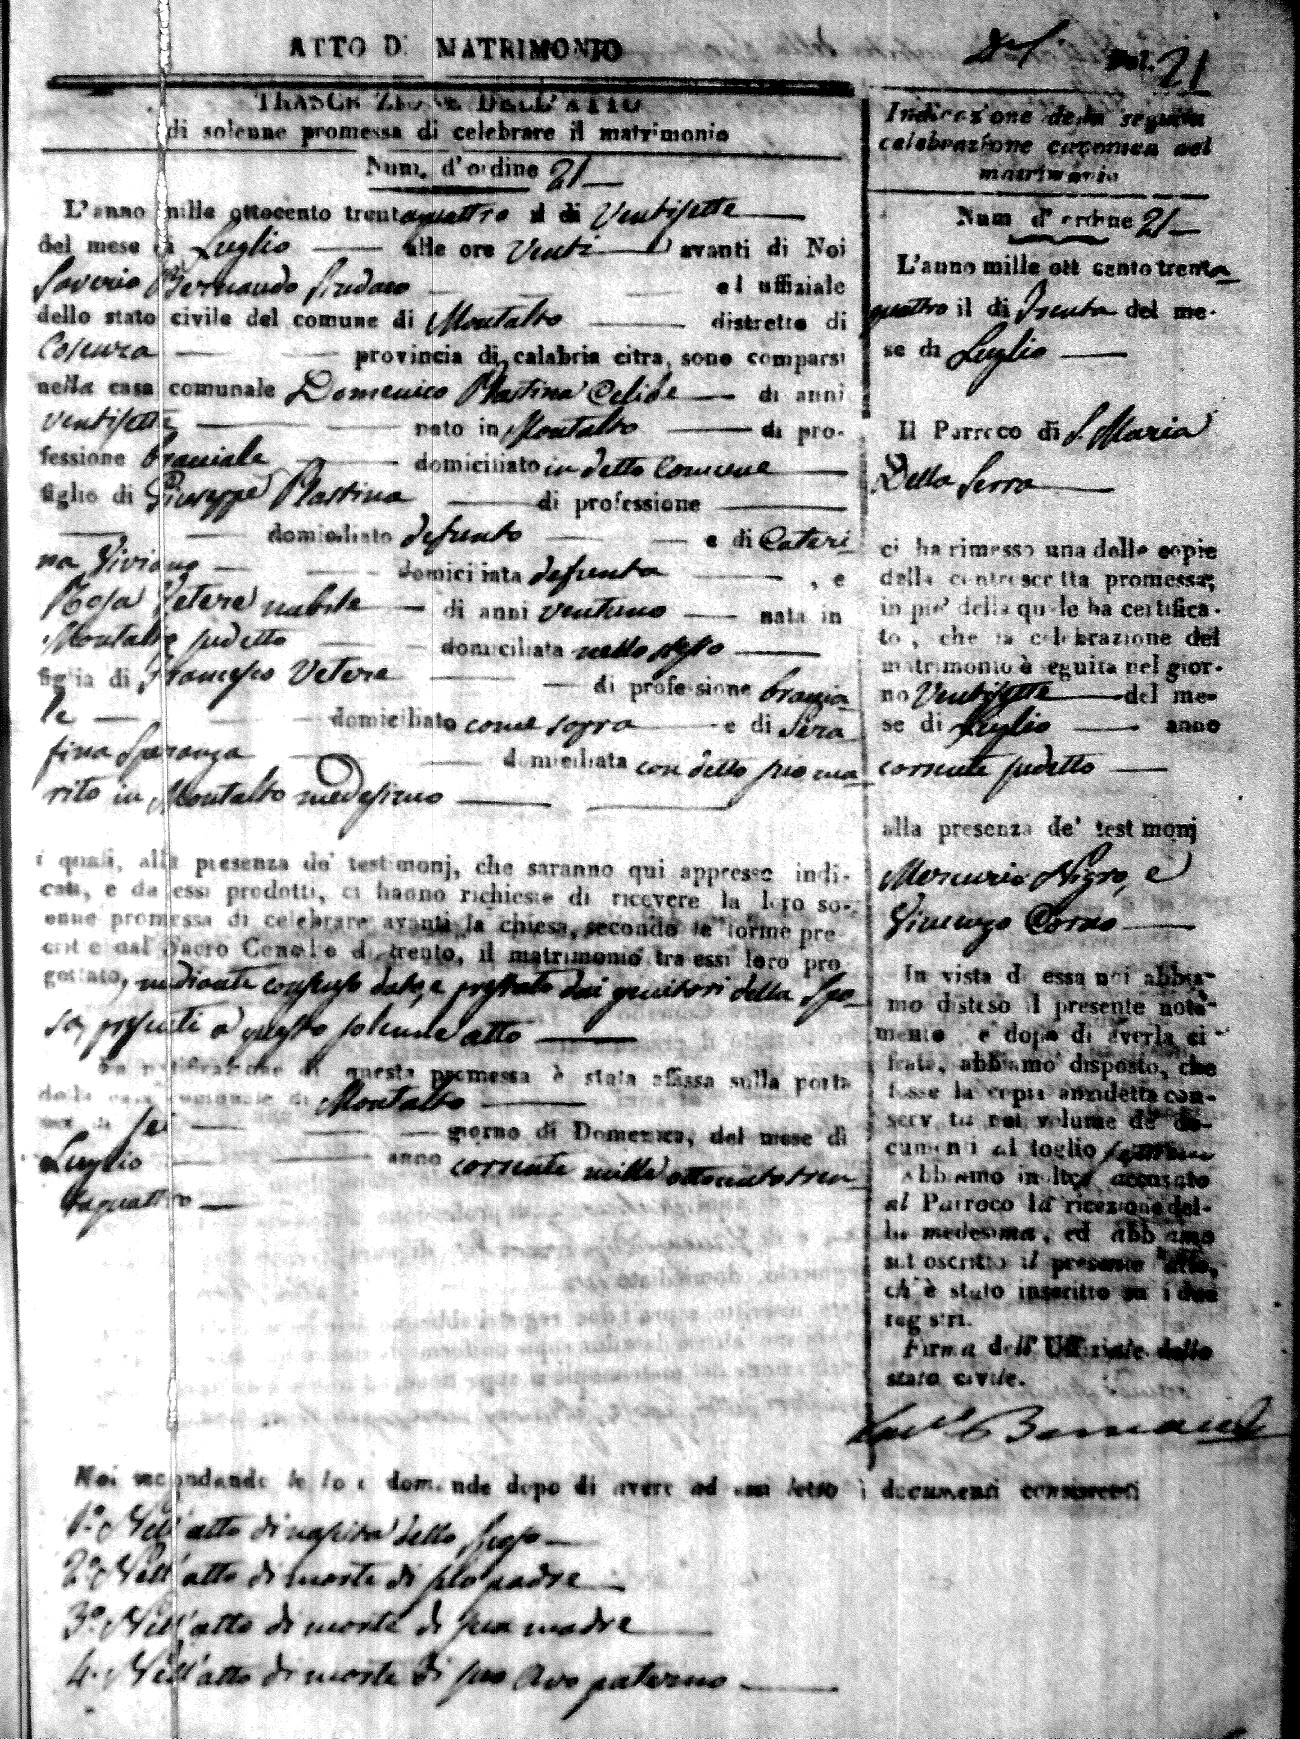 ATTO DI MATRIMONIO
Fol. 21
TRASCRIZIONE DELL'ATTO
di solenne promessa di celebrare il matrimonio
Num. d'ordine 21
L'anno mille ottocento trentaquattro il dì Ventisette
del mese di Luglio alle ore Venti avanti di Noi
Saverio Bernaudo Sindaco ed uffiziale
dello stato civile del comune di Montalto distretto di
Cosenza provincia di calabria citra, sono comparsi
nella casa comunale Domenico Plastina Celibe di anni
Ventisette nato in Montalto di pro-
fessione braciale domiciliato in detto Comune
figlio di Giuseppe Plastina di professione
domiciliato defunto e di Cateri
na Viviano domiciliata defunta , e
Rosa Vetere nubile di anni ventuno nata in
Montalto sudetto domiciliata nello stesso
figlia di Francesco Vetere di professione bracia
le domiciliato come sopra e di Sera
fina Speranza domiciliata con detto suo ma
rito in Montalto medesimo
i quali, alla presenza de' testimonj, che saranno qui appresso indi-
cati, e da essi prodotti, ci hanno richiesto di ricevere la loro so-
enne promessa di celebrare avanti la chiesa, secondo le forme pre
crit e dal Sacro Concilio di trento, il matrimonio tra essi loro pro
gettato, mediante consenso dato, e prestato dai genitori della Spo
sa, presenti a questo solenne atto
La notificazione di questa promessa è stata affissa sulla porta
della casa comunale di Montalto
sei giorno di Domenica, del mese di
Luglio anno corrente mille ottocento tren
taquattro
Noi secondando le loro domande dopo di avere ad essi letto i documenti consistenti
1.° Nell'atto di nascita dello Sposo
2.° Nell'atto di morte di suo padre
3.° Nell'atto di morte di sua madre
4. Nell'atto di morte di suo Avo paterno
Indicazione della seguita
celebrazione canonica del
matrimonio
Num d'ordine 21
L'anno mille ottocento trenta
quattro il di Trenta del me-
se di Luglio
Il Parroco di S. Maria
Della Serra
ci ha rimesso una delle copie
della controscritta promessa;
in piè della quale ha certifica-
to, che la celebrazione del
matrimonio è seguita nel gior-
no Ventisette del me-
se di Luglio anno
corrente sudetto
alla presenza de' testimonj
Mercurio Nigro, e
Vincenzo Corno
In vista di essa noi abbia-
mo disteso il presente nota-
mento, e dopo di averla ci-
frata, abbiamo disposto, che
fosse la copia anzidetta con-
servata nel volume de' do-
cumenti al foglio
Abbiamo inoltre accusato
al Parroco la ricezione del-
la medesima, ed abbiamo
sottoscritto il presente atto,
ch'è stato inscritto su i due
registri.
Firma dell'Uffiziale dello
stato civile.
Sav.o Bernaudo